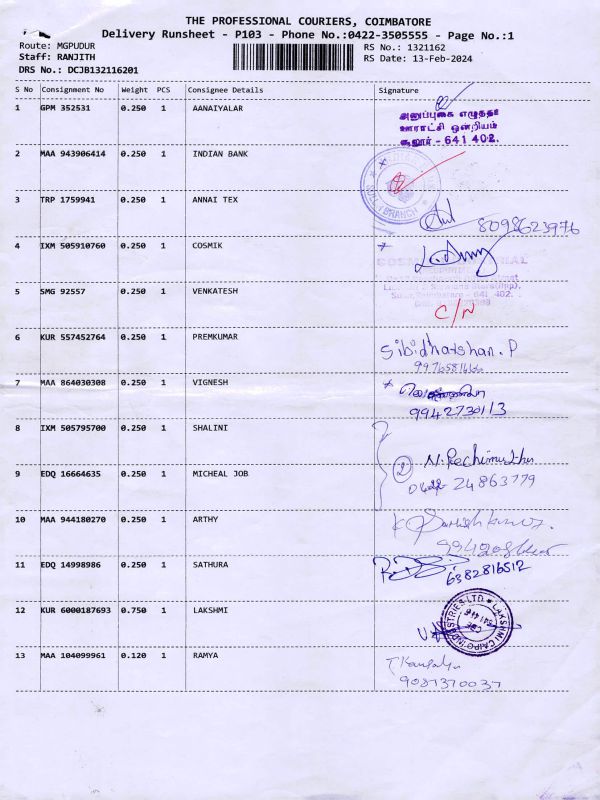 THE PROFESSIONAL COURIERS, COIMBATORE
Delivery Runsheet - P103 - Phone No.:0422-3505555 - Page No.:1
Route: MGPUDUR
RS No.: 1321162
Staff: RANJITH
RS Date: 13-Feb-2024
DRS No.: DCJB132116201
S No Consignment No Weight PCS Consignee Details Signature
1 GPM 352531 0.250 1 AANAIYALAR
அனுப்புகை எழுத்தர்
ஊராட்சி ஒன்றியம்
சூலூர் - 641 402.
2 MAA 943906414 0.250 1 INDIAN BANK
BRANCH
3 TRP 1759941 0.250 1 ANNAI TEX
8098623976
4 IXM 505910760 0.250 1 COSMIK
5 SMG 92557 0.250 1 VENKATESH
C/N
6 KUR 557452764 0.250 1 PREMKUMAR
Sibidharshan. P
7 MAA 864030308 0.250 1 VIGNESH
9942730113
8 IXM 505795700 0.250 1 SHALINI
9 EDQ 16664635 0.250 1 MICHEAL JOB
2 N. Pechimuthu
0422 24863779
10 MAA 944180270 0.250 1 ARTHY
11 EDQ 14998986 0.250 1 SATHURA
6382816512
12 KUR 6000187693 0.750 1 LAKSHMI
LAKSHMI CAIPO INDUSTRIES LTD.
CBE
641 416
13 MAA 104099961 0.120 1 RAMYA
9087370037